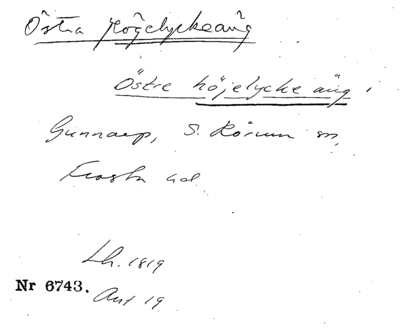 Östra Högelyckeäng
Östre höjelycke äng,
Gunnarp, S. Rörum sn,
Frosta hd
Lh. 1819
Nr 6743.
Akt 19